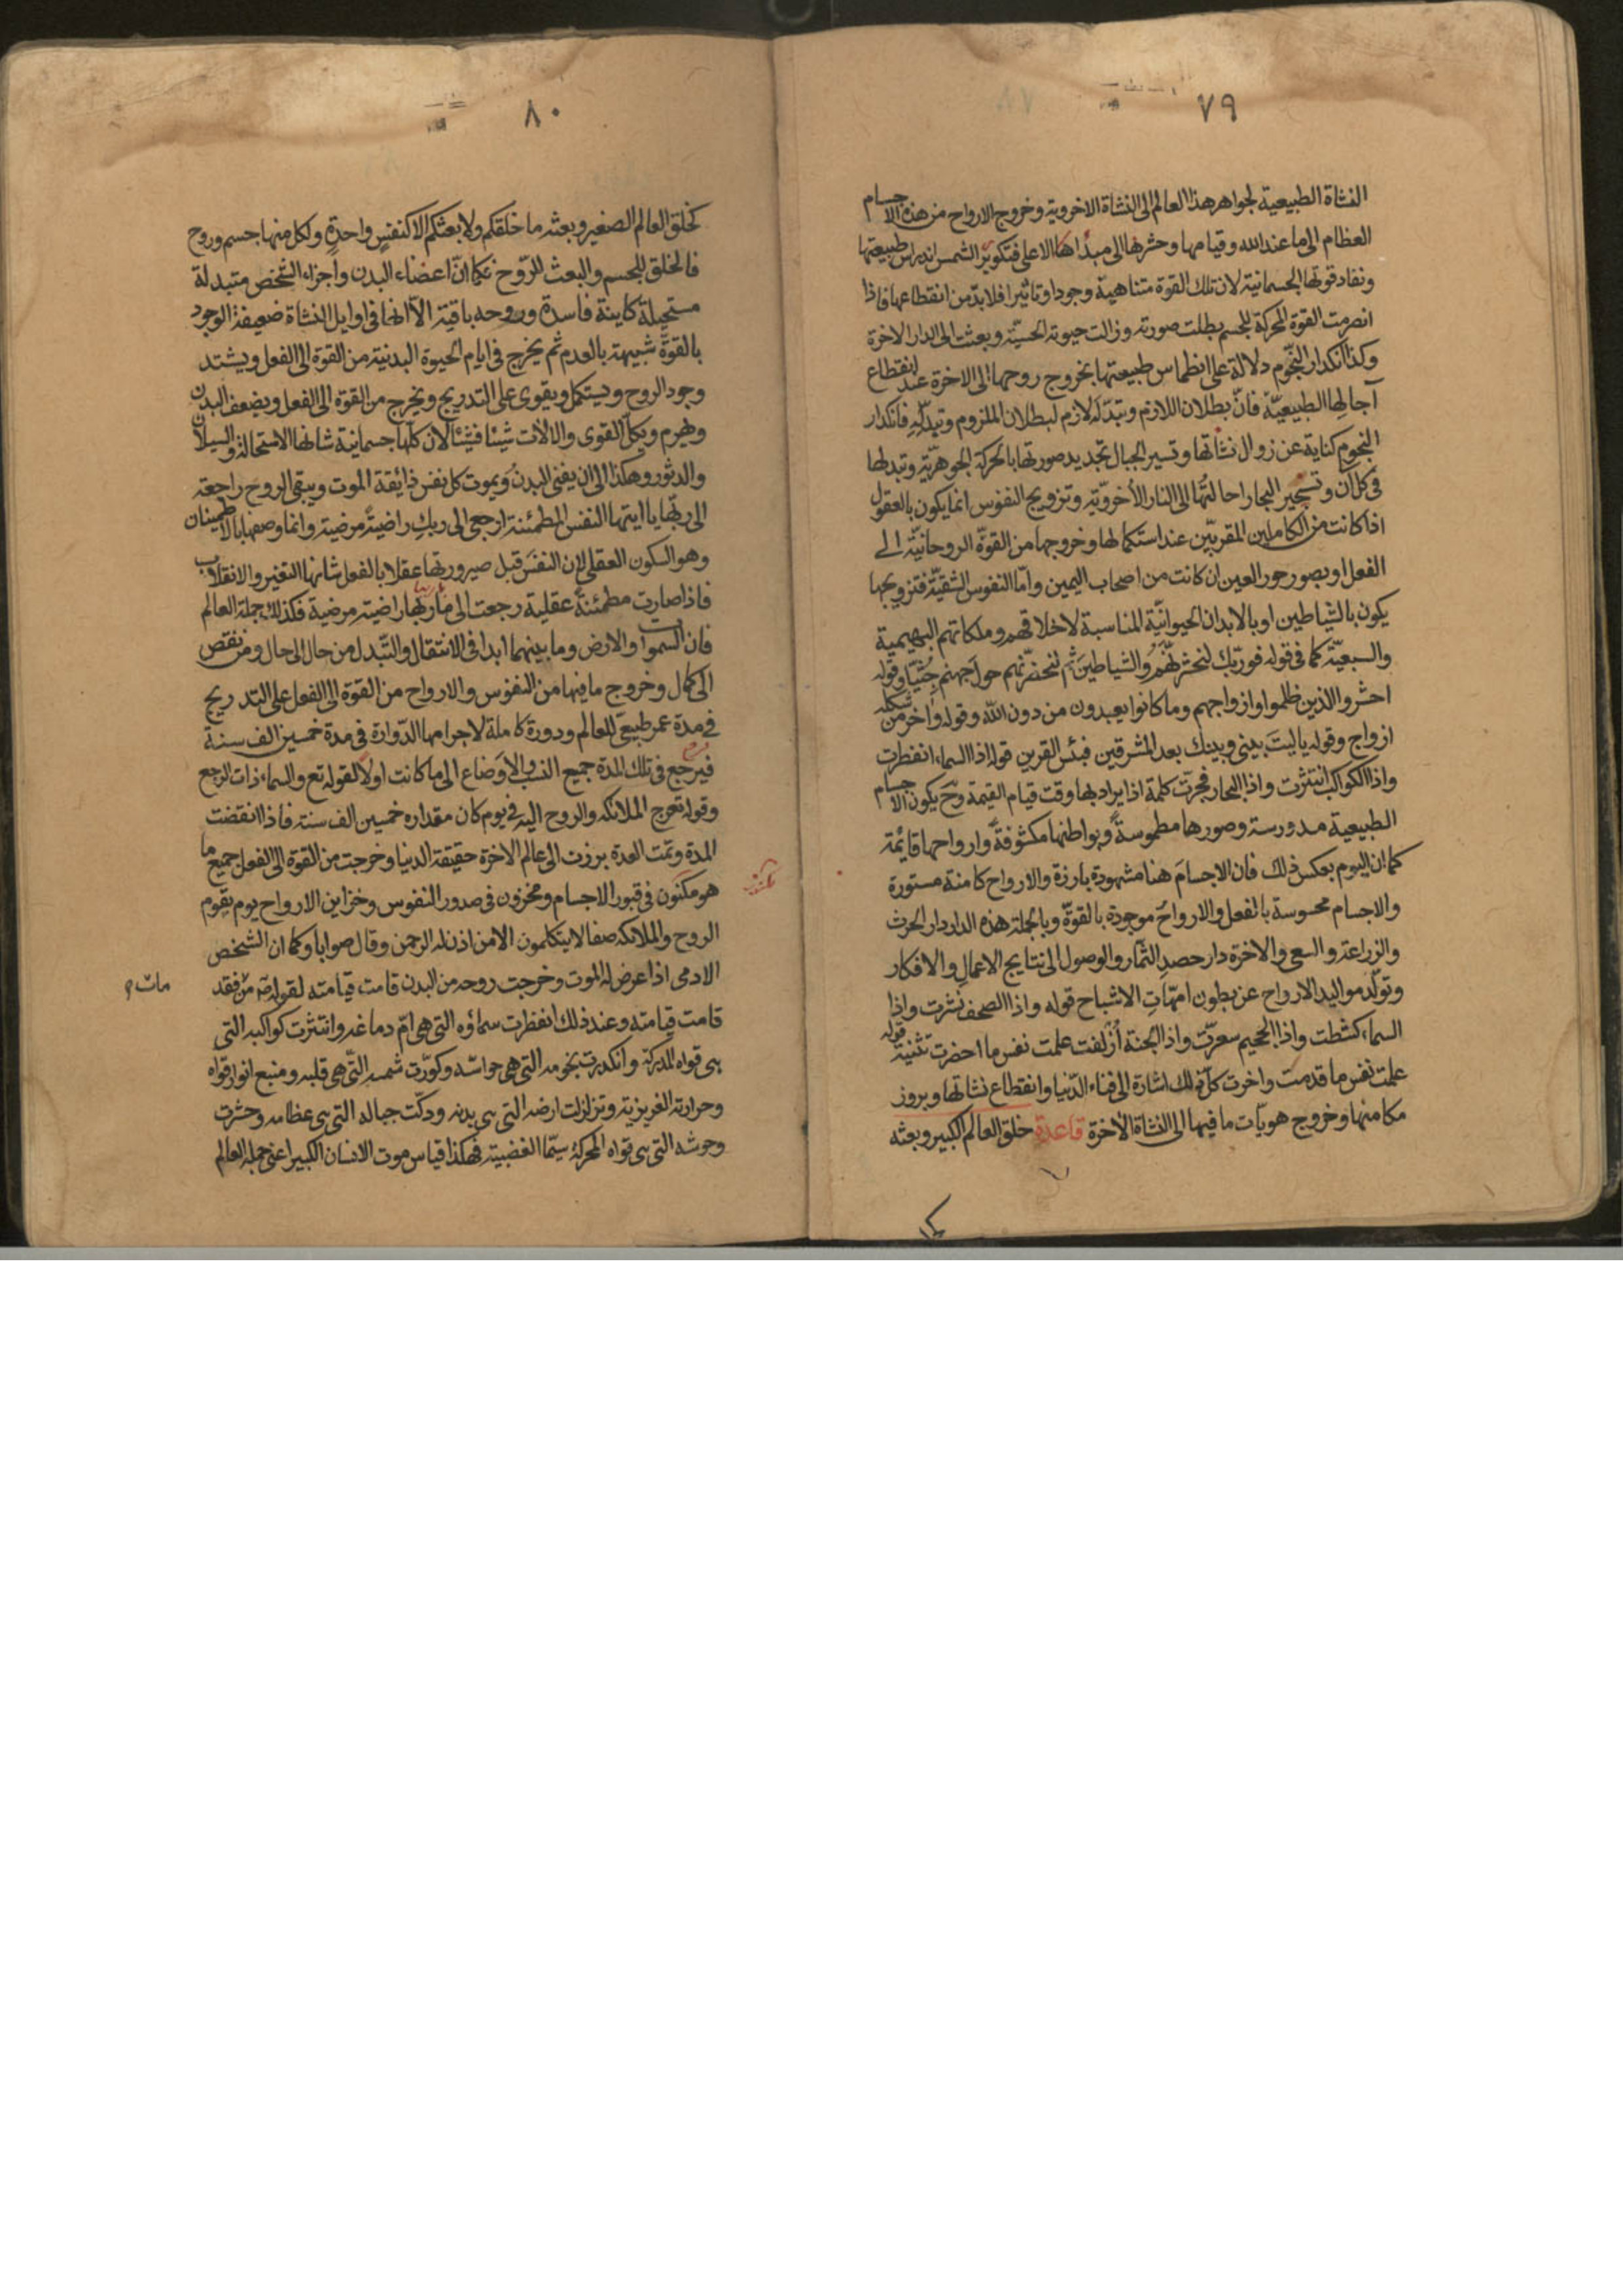 ٧٩
النشاة الطبيعية لجواهر هذا العالم الى النشاة الاخروية وخروج الارواح من هذه الاجسام
العظام الى ما عند الله وقيامها وحشرها الى مبداها الاعلى فتكوير الشمس اندراس طبيعتها
ونفاد قوتها الجسمانية لان تلك القوة متناهية وجودا وتاثيرا فلا بدّ من انقطاعها فاذا
انصرمت القوة المحركة للجسم بطلت صورته وزالت حيوته الحسيّة وبعثت الى الدار الاخرة
وكذا انكدار النجوم دلالة على انطماس طبيعتها بخروج روحها الى الاخرة عند انقطاع
آجالها الطبيعيّة فانّ بطلان اللازم وتبدّله لازم لبطلان الملزوم وتبدّله فانكدار
النجوم كناية عن زوال نشأتها وتسير الجبال تجديد صورتها بالحركة الجوهريّة وتبدلها
فى كل آن وتسجير البحار احالتها الى النار الأخرويّة وتزويج النفوس انما يكون بالعقول
اذا كانت من الكاملين المقربّين عند استكمالها وخروجها من القوة الروحانيّة الى
الفعل او بصور حور العين ان كانت من اصحاب اليمين وامّا النفوس الشقيّة فتزويجها
يكون بالشياطين او بالابدان الحيوانيّة المناسبة لاخلاقهم وملكاتهم البهيمية
والسبعيّة كما فى قوله فوربّك لنحشرنّهم والشياطين ثم لنحضرنّهم حول جهنم جثيّا وقوله
احشروا الذين ظلموا وازواجهم وما كانوا يعبدون من دون الله وقوله واخر من شكله
ازواج وقوله ياليت بينى وبينك بعد المشرقين فبئس القرين قوله اذا السماء انفطرت
واذا الكواكب انتثرت واذا البحار فجرت كلمة اذا يراد بها وقت قيام القيمة وح يكون الاجسام
الطبيعية مدروسة وصورها مطموسة وبواطنها مكشوفة وارواحها قايمة
كما ان اليوم بعكس ذلك فان الاجسام هنا مشهودة بارزة والارواح كامنة مستورة
والاجسام محسوسة بالفعل والارواح موجودة بالقوة وبالجملة هذه الدار دار الحرث
والزراعة والسعى والاخرة دار حصد الثمار والوصول الى نتايج الاعمال والافكار
وتولّد مواليد الارواح عن بطون امّهات الاشباح قوله واذا الصحف نشرت واذا
السماء كشطت واذا الجحيم سعرّت واذا الجنة ازلفت علمت نفس ما احضرت قوله
علمت نفس ما قدمت واخرت كل ذلك اشارة الى فناء الدّنيا وانقطاع نشاتها وبروز
مكامنها وخروج هويّات ما فيها الى النشاة الأخرة قاعدة خلق العالم الكبير وبعثه
٨٠
كخلق العالم الصغير وبعثه ما خلقكم ولا بعثكم الا كنفس واحدة ولكل منها جسم وروح
فالخلق للجسم والبعث للرّوح فكما انّ اعضاء البدن واجزاء الشخص متبدلة
مستحيلة كاينة فاسدة وروحه باقية الاّ انها فى اوايل النشاة ضعيفة الوجود
بالقوة شبيهة بالعدم ثم يخرج فى ايام الحيوة البدنية من القوة الى الفعل ويشتد
وجود الروح ويستكمل ويقوى على التدريج ويخرج من القوة الى الفعل ويضعف البدن
ويهرم ويكلّ القوى والالات شيئا فشيئا لان كلها جسمانية شانها الاستحالة والسيلان
والدثور وهكذا الى ان يفنى البدن ويموت كل نفس ذائقة الموت ويبقى الروح راجعة
الى ربّها يا ايتها النفس المطمئنة ارجعى الى ربك راضية مرضية وانما وصفها بالاطمينان
وهو السكون العقلى لان النفس قبل صيرورتها عقلا بالفعل شانها التغير والانقلاب
فاذا صارت مطمئنة عقلية رجعت الى ربها راضية مرضية فكذلك جملة العالم
فان السموات والارض وما بينهما ابدا فى الانتقال والتبدل من حال الى حال ومن نقص
الى كمال وخروج ما فيها من النفوس والارواح من القوة الى الفعل على التدريج
فى مدة عمر طبيعى للعالم ودورة كاملة لاجرامها الدّوارة فى مدة خمسين الف سنة
فيرجع فى تلك المدة جميع النسب والاوضاع الى ما كانت اولا لقوله تع والسماء ذات الرجع
وقوله تعرج الملائكة والروح اليه فى يوم كان مقداره خمسين الف سنة فاذا انقضت
المدة وتمت العدة برزت الى عالم الاخرة حقيقة الدنيا وخرجت من القوة الى الفعل جميع ما
هو مكنون فى قبور الاجسام ومخزون فى صدور النفوس وخزاين الارواح يوم يقوم
الروح والملائكة صفا لا يتكلمون الا من اذن له الرحمن وقال صوابا وكما ان الشخص
الادمى اذا عرض له الموت وخرجت روحه من البدن قامت قيامته لقوله ص من فقد
مات
قامت قيامته وعند ذلك انفطرت سماؤه التى هى امّ دماغه وانتثرت كواكبه التى
هى قواه المدركة وانكدرت نجومه التى هى حواسّه وكوّرت شمسه التى هى قلبه ومنبع انوار قواه
وحرارته الغريزية وتزلزلت ارضه التى هى بدنه ودكّت جباله التى هى عظامه وحشرت
وحوشه التى هى قواه المحركة سيّما الغضبية فهكذا قياس موت الانسان الكبير اعنى جملة العالم